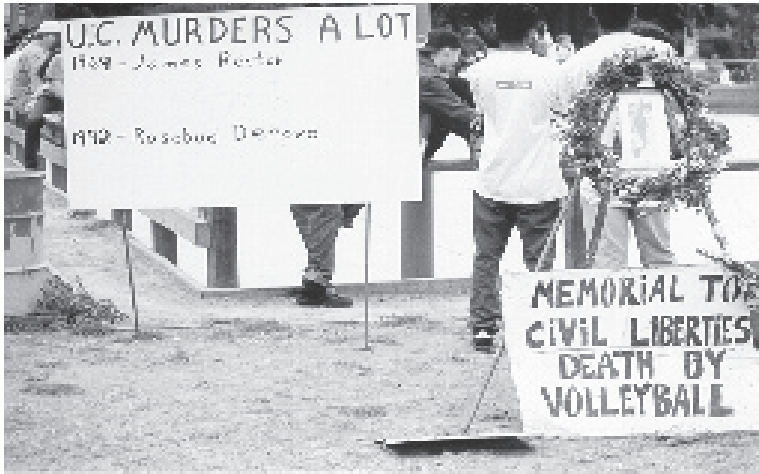 U.C. MURDERS A LOT
1969 - James Rector
1992 - Rosebud Denovo
MEMORIAL TO
CIVIL LIBERTIES
DEATH BY
VOLLEYBALL